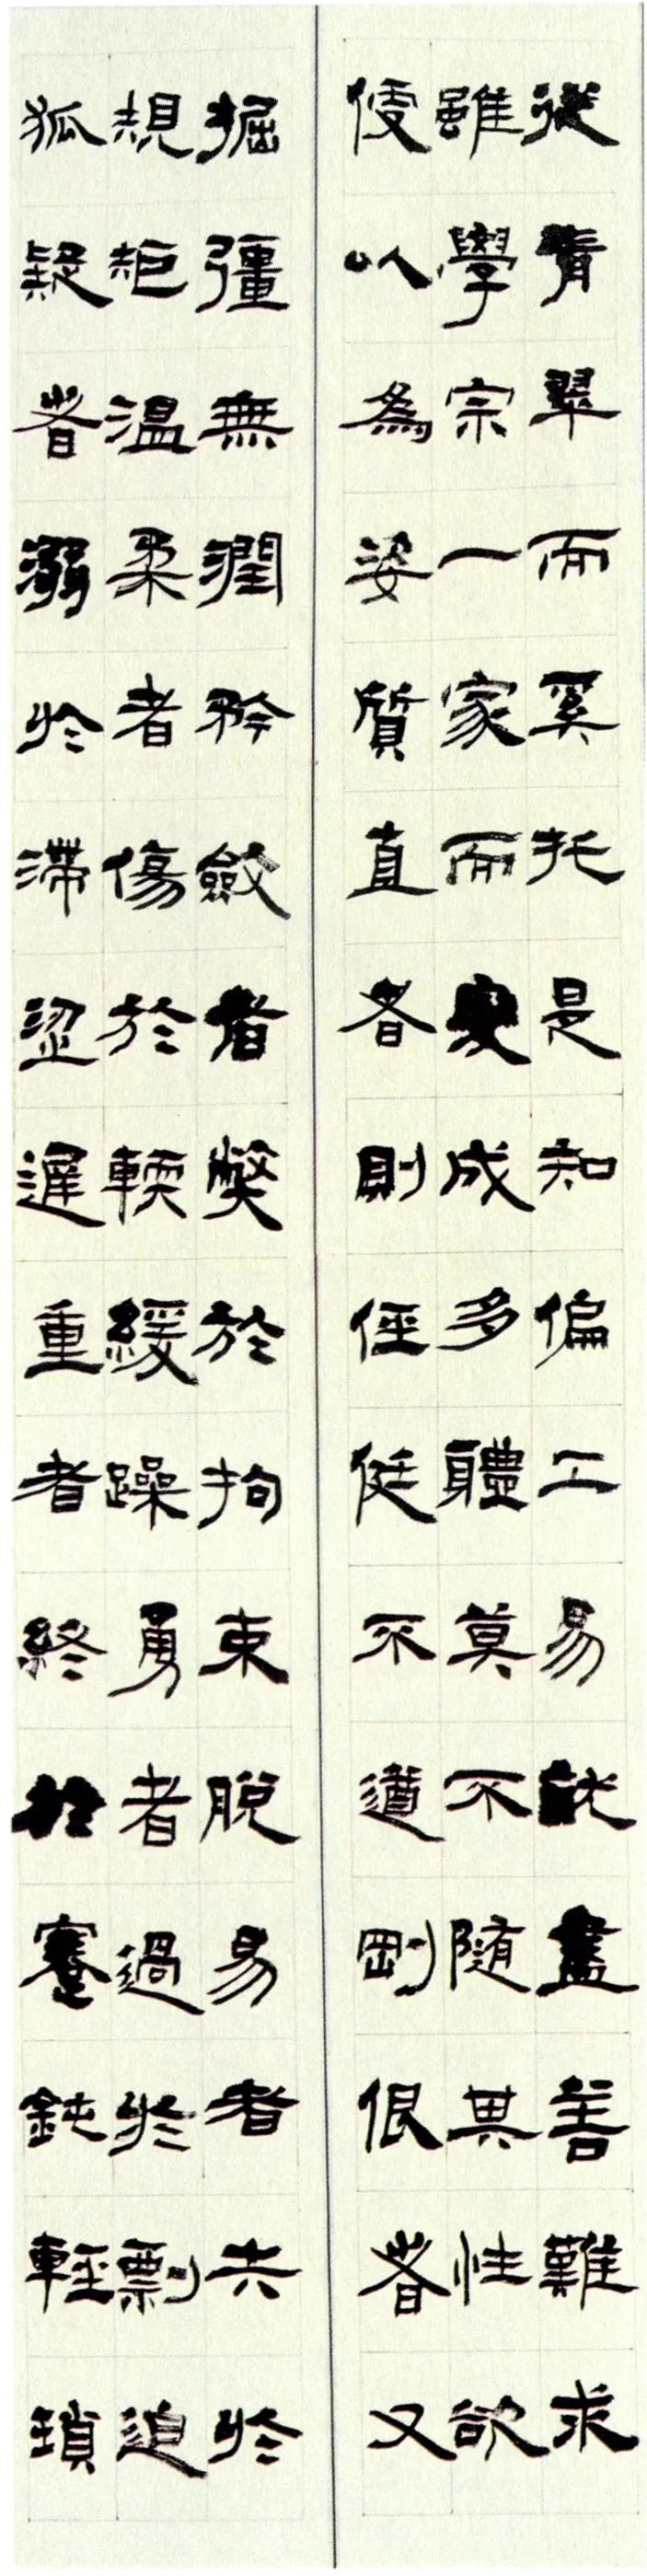 從青翠而奚托是知偏工易就盡善難求
雖學宗一家而變成多體莫不隨其性欲
便以為姿質直者則俓侹不遒剛佷者又
掘彊無潤矜斂者獘於拘束脫易者失於
規矩温柔者傷於輭緩躁勇者過於剽迫
狐疑者溺於滯澁遲重者終於蹇鈍輕瑣